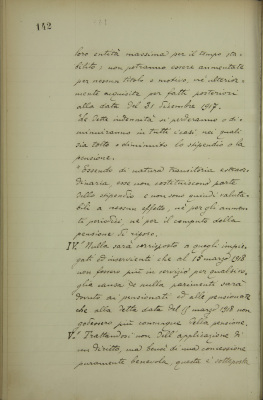 142
loro entità massima per il tempo sta-
bilito; non potranno essere aumentate
per nessun titolo o motivo, nè ulterior-
mente acquisite per fatti posteriori
alla data del 31 Dicembre 1917.
Le dette indennità si perderanno o di-
minuiranno in tutti i casi nei quali
sia tolto o diminuito lo stipendio o la
pensione.
"Essendo di natura transitoria e straor-
dinaria esse non costituiscono parte
dello stipendio e non sono quindi valuta-
bili a nessun effetto, nè per gli aumen-
ti periodici, nè per il computo della
pensione di riposo.
IV.° Nulla sarà corrisposto a quegli impie-
gati ed inserviente che al 18 marzo 1918
non fossero più in servizio per qualsivo-
glia causa e nulla parimenti sarà
dovuto ai pensionati ed alle pensionate
che alla detta data del 18 marzo 1918 non
godessero più comunque della pensione.
V.° Trattandosi non dell'applicazione di
un diritto, ma bensì di una concessione
puramente benevola, questa è sottoposta